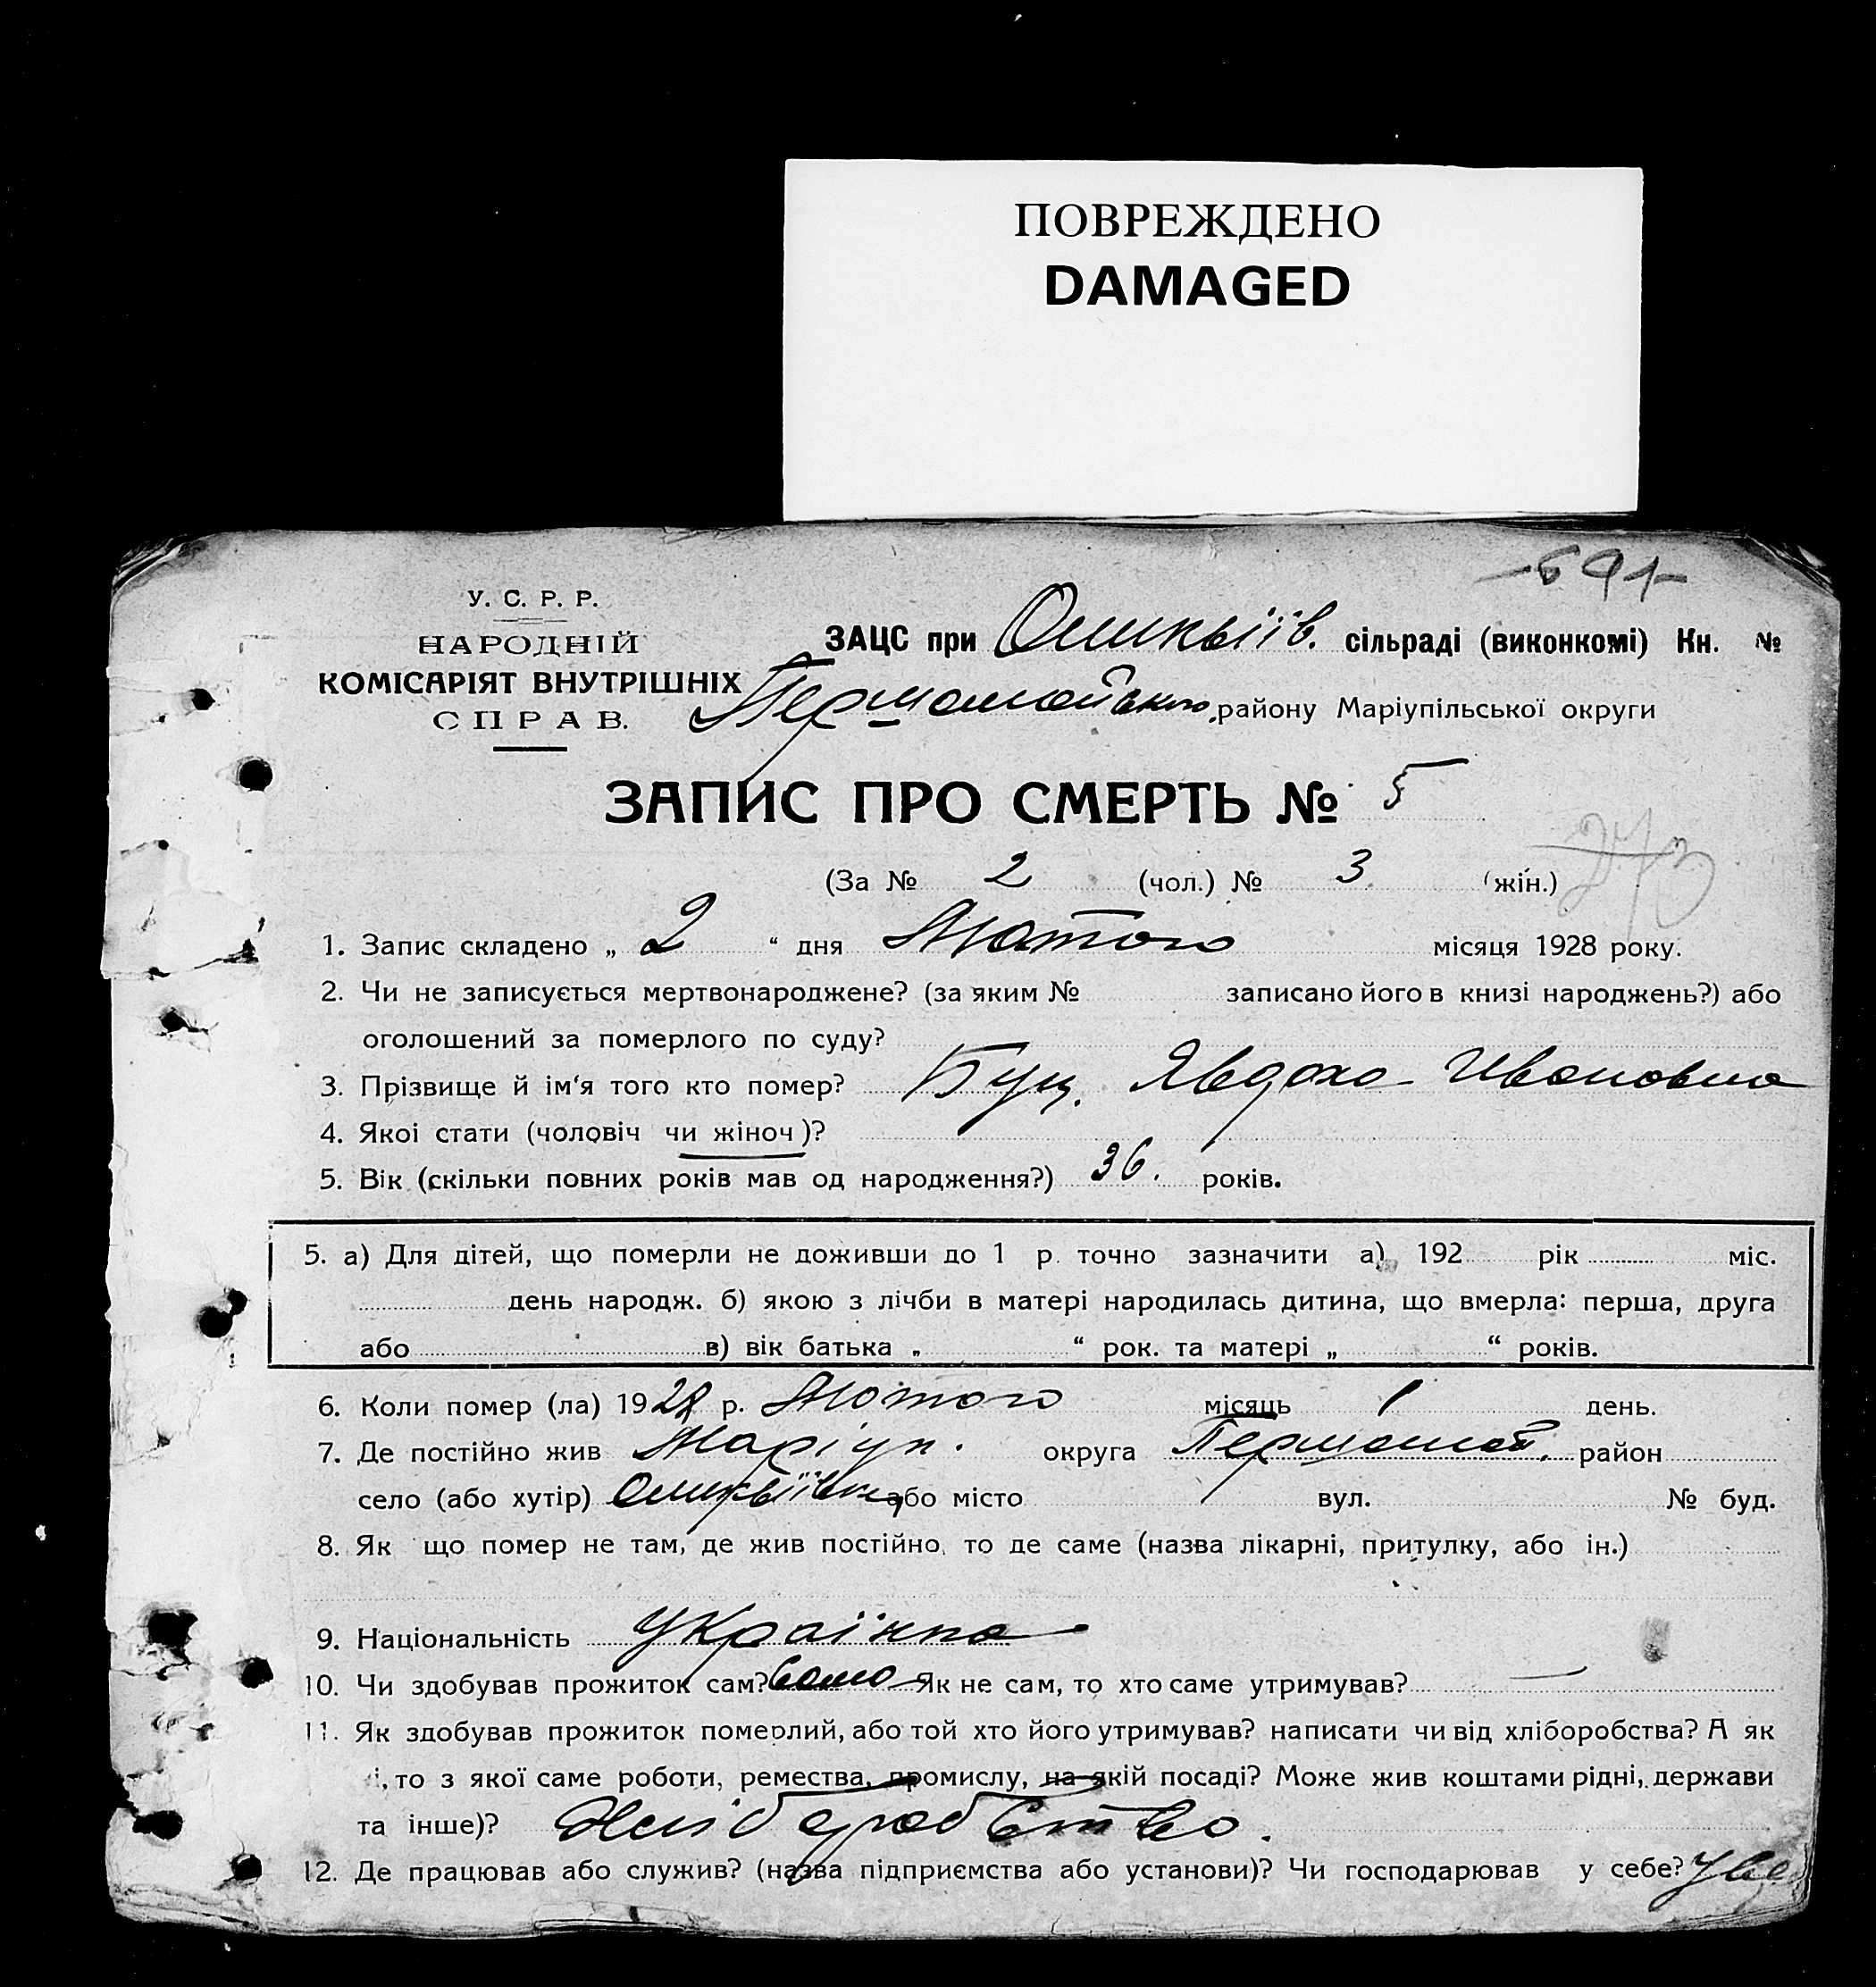 ПОВРЕЖДЕНО
DAMAGED
-691-
У. С. Р. Р.
НАРОДНІЙ
КОМІСАРІЯТ ВНУТРІШНІХ
СПРАВ.
ЗАЦС при сільраді (виконкомі) Кн. №
Першомайського району Маріупільської округи
ЗАПИС ПРО СМЕРТЬ № 5
273
(За № 2 (чол.) № 3 (жін.)
1. Запис складено „ 2 “ дня Лютого місяця 1928 року.
2. Чи не записується мертвонароджене? (за яким № записано його в книзі народжень?) або
оголошений за померлого по суду?
3. Прізвище й ім‘я того кто помер? Буц. Явдоха Ивановна
4. Якоі стати (чоловіч чи жіноч)?
5. Вік (скільки повних років мав од народження?) 36. років.
5. а) Для дітей, що померли не доживши до 1 р. точно зазначити а) 192 рік міс.
день народж. б) якою з лічби в матері народилась дитина, що вмерла: перша, друга
або в) вік батька „ “ рок. та матері „ “ років.
6. Коли помер (ла) 1928 р. Лютого місяць 1 день.
7. Де постійно жив Маріуп. округа Першомай. район
село (або хутір) або місто вул. № буд.
8. Як що помер не там, де жив постійно, то де саме (назва лікарні, притулку, або ін.)
9. Національність Українка
10. Чи здобував прожиток сам? Сама Як не сам, то хто саме утримував? —
11. Як здобував прожиток померлий, або той хто його утримував? написати чи від хліборобства? А як
і, то з якої саме роботи, ремества, промислу, на якій посаді? Може жив коштами рідні, держави
та інше)? Хліборобство.
12. Де працював або служив? (назва підприємства або установи)? Чи господарював у себе?